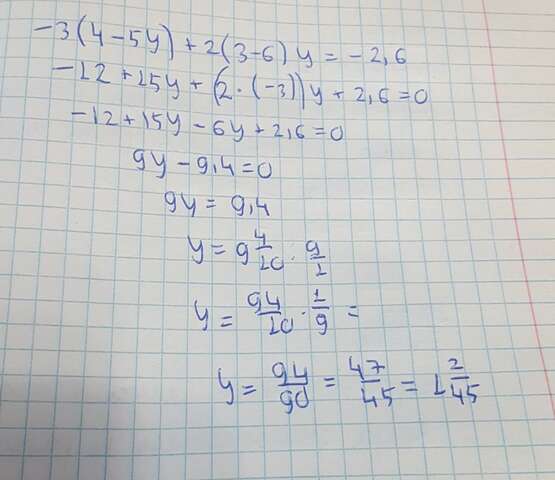 -3(4-5y)+2(3-6)y=-2,6
-12+15y+(2·(-3))y+2,6=0
-12+15y-6y+2,6=0
9y-9,4=0
9y=9,4
y=9 4/10 · 9/1
y=94/10 · 1/9 =
y=94/90=47/45=1 2/45